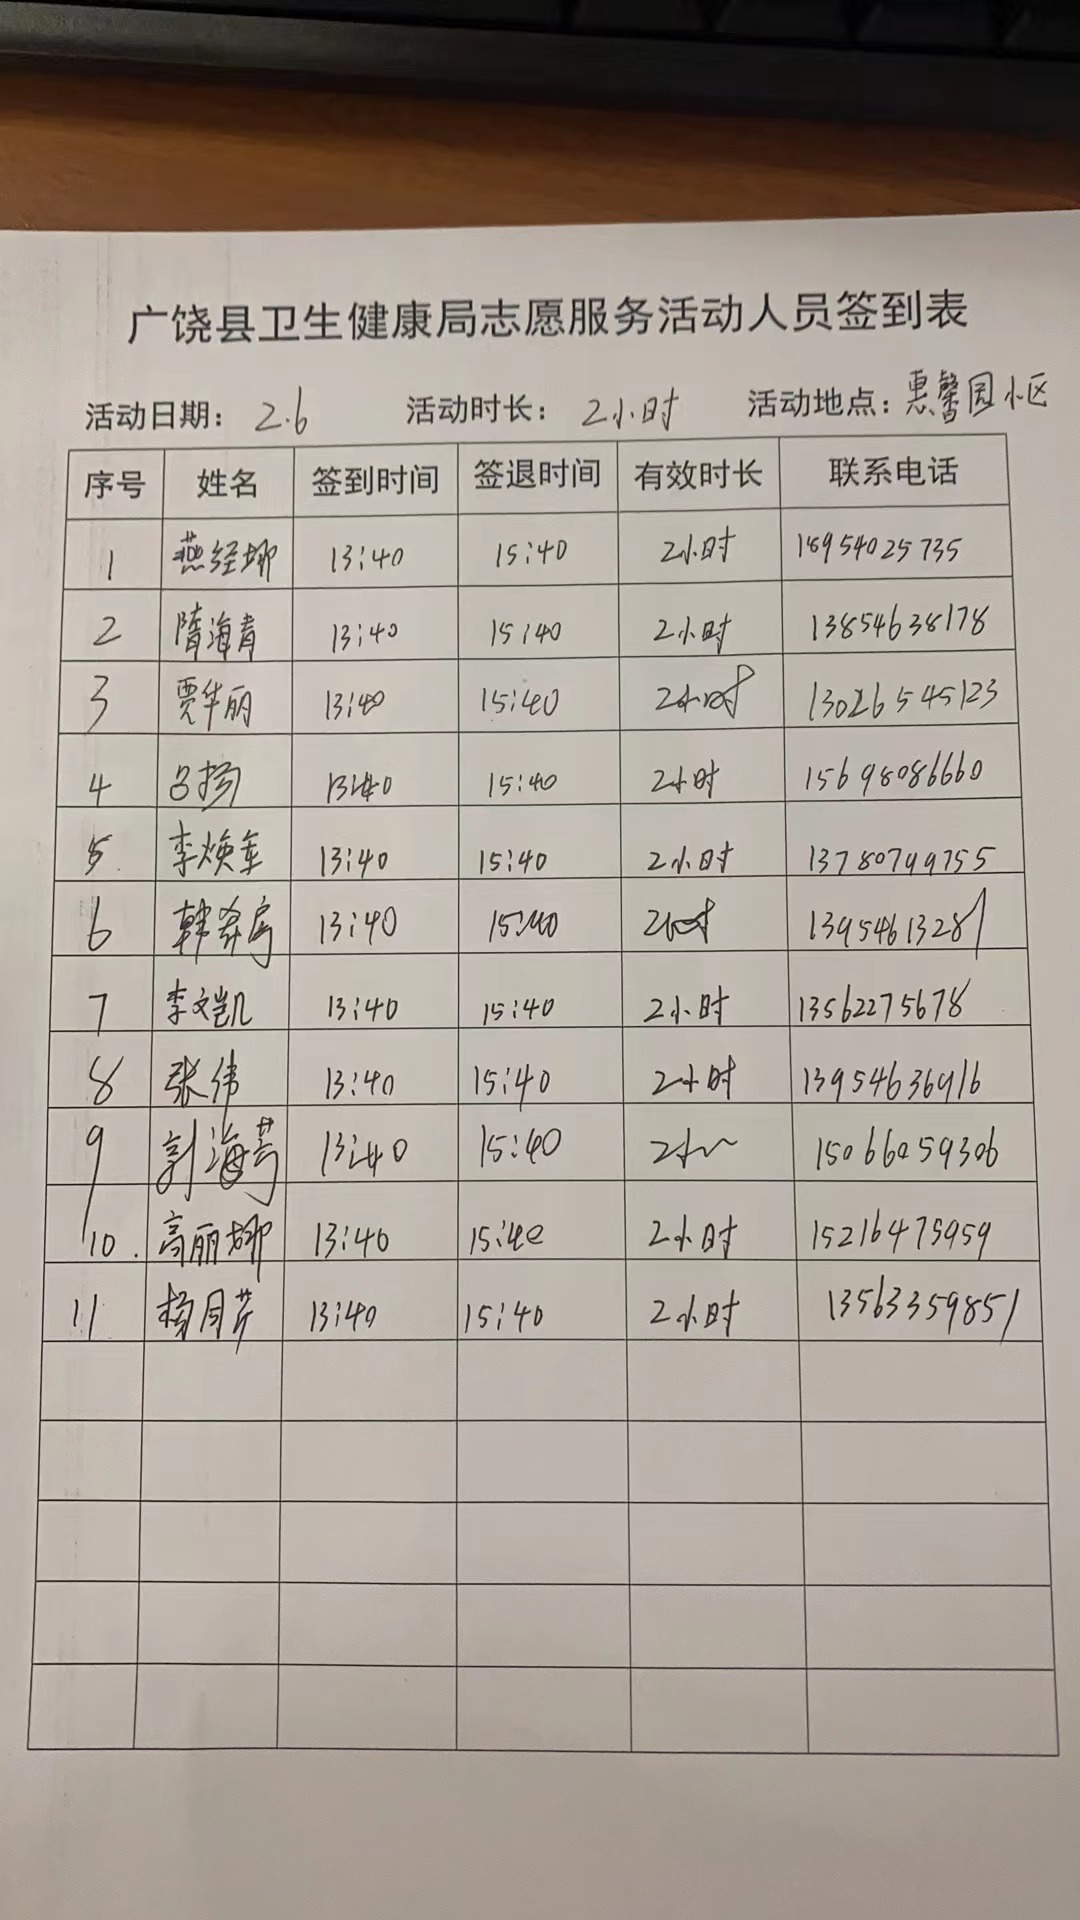 广饶县卫生健康局志愿服务活动人员签到表
活动日期：2.6 活动时长：2小时 活动地点：惠馨园小区
序号 姓名 签到时间 签退时间 有效时长 联系电话
1 燕经娜 13:40 15:40 2小时 18954025735
2 隋海青 13:40 15:40 2小时 13854638178
3 贾华丽 13:40 15:40 2小时 13026545123
4 吕扬 13:40 15:40 2小时 15698086660
5. 李焕军 13:40 15:40 2小时 13780799755
6 韩 13:40 15:40 2小时 13954613281
7 李文凯 13:40 15:40 2小时 13562275678
8 张伟 13:40 15:40 2小时 13954636916
9 刘海 13:40 15:40 15066059306
10. 高丽娜 13:40 15:40 2小时 15216475959
11 杨月芹 13:40 15:40 2小时 13563359851